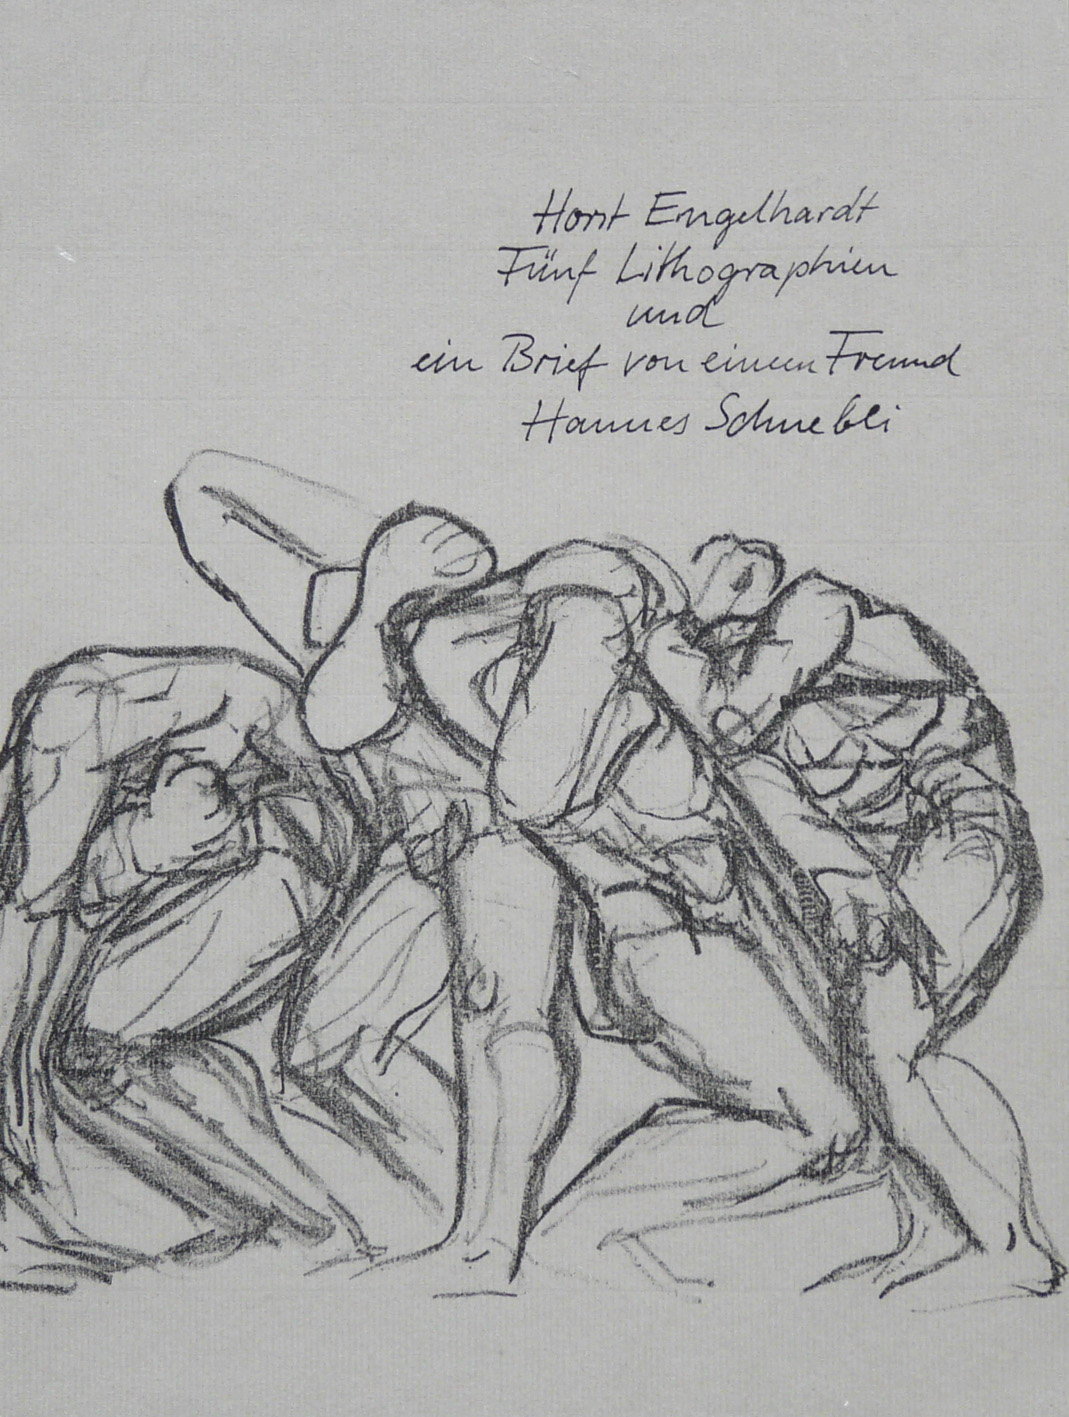 Horst Engelhardt
Fünf Lithographien
und
ein Brief von einem Freund
Hannes Schnebli